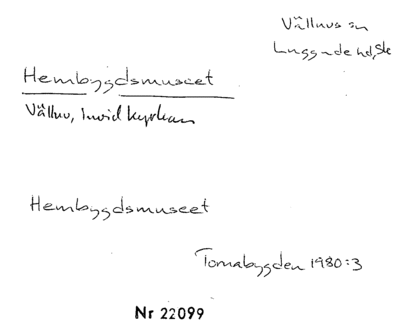 Välluvs sn
Luggude hd, Sk
Hembygdsmuseet
Välluv, invid kyrkan
Hembygdsmuseet
Tornabygden 1980:3
Nr 22099